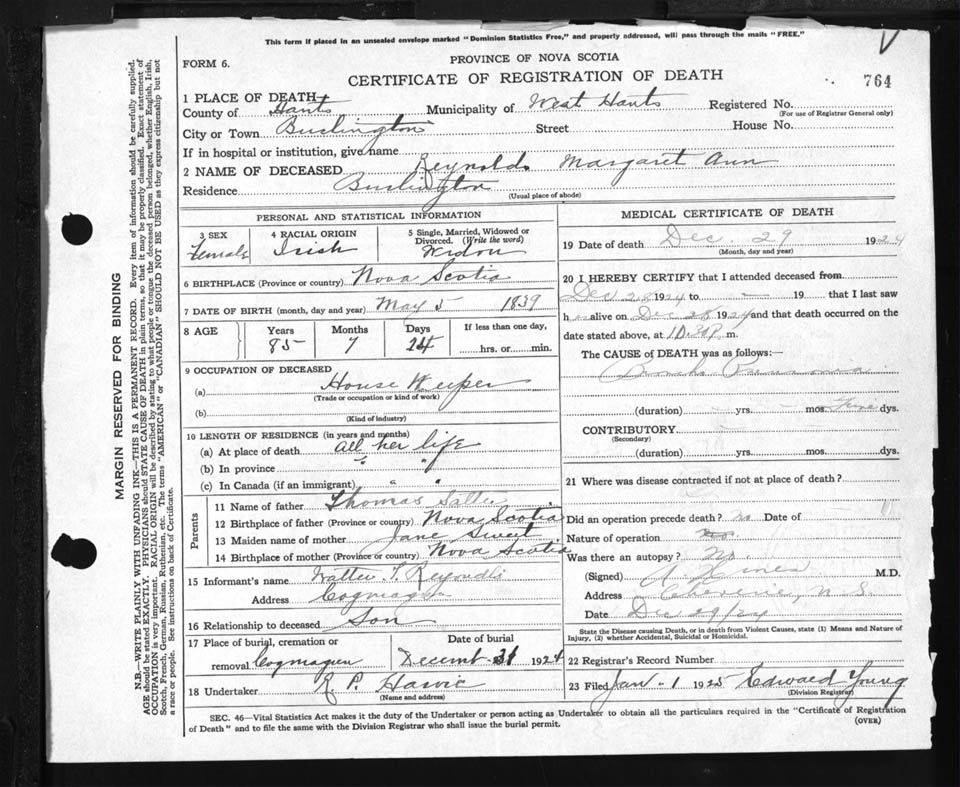 This form if placed in an unsealed envelope marked "Dominion Statistics Free," and properly addressed, will pass through the mails "FREE."
FORM 6.
PROVINCE OF NOVA SCOTIA
CERTIFICATE OF REGISTRATION OF DEATH
764
1 PLACE OF DEATH—
County of Hants Municipality of West Hants Registered No.
(For use of Registrar General only)
City or Town Burlington Street House No.
If in hospital or institution, give name
2 NAME OF DECEASED Reynolds Margaret Ann
Residence Burlington
(Usual place of abode)
PERSONAL AND STATISTICAL INFORMATION
3 SEX Female
4 RACIAL ORIGIN Irish
5 Single, Married, Widowed or Divorced. (Write the word) Widow
6 BIRTHPLACE (Province or country) Nova Scotia
7 DATE OF BIRTH (month, day and year) May 5 1839
8 AGE Years Months Days If less than one day,
85 7 24 hrs. or min.
9 OCCUPATION OF DECEASED
(a) House Keeper
(Trade or occupation or kind of work)
(b)
(Kind of industry)
10 LENGTH OF RESIDENCE (in years and months)
(a) At place of death all her life
(b) In province " "
(c) In Canada (if an immigrant) " "
Parents
11 Name of father Thomas Salter
12 Birthplace of father (Province or country) Nova Scotia
13 Maiden name of mother Jane Sweet
14 Birthplace of mother (Province or country) Nova Scotia
15 Informant's name Walter T. Reynolds
Address Cogmagun
16 Relationship to deceased Son
17 Place of burial, cremation or removal Cogmagun Date of burial Decemt 31 1924
18 Undertaker R P. Harvie
(Name and address)
MEDICAL CERTIFICATE OF DEATH
19 Date of death Dec. 29 1924
(Month, day and year)
20 I HEREBY CERTIFY that I attended deceased from
Dec 28 1924 to — 19 that I last saw
h er alive on Dec 28 1924 and that death occurred on the
date stated above, at 10.30 P. m.
The CAUSE OF DEATH was as follows:—
Broncho Pneumonia
(duration) yrs. mos. five dys.
CONTRIBUTORY
(Secondary)
(duration) yrs. mos. dys.
21 Where was disease contracted if not at place of death?
Did an operation precede death? no Date of
Nature of operation
Was there an autopsy? No
(Signed) M.D.
Address Cheverie, N. S.
Date Dec 29/24
State the Disease causing Death, or in death from Violent Causes, state (1) Means and Nature of
Injury, (2) whether Accidental, Suicidal or Homicidal.
22 Registrar's Record Number
23 Filed Jan - 1 1925 Edward Young
(Division Registrar)
SEC. 46—Vital Statistics Act makes it the duty of the Undertaker or person acting as Undertaker to obtain all the particulars required in the "Certificate of Registration
of Death" and to file the same with the Division Registrar who shall issue the burial permit.
(OVER)
MARGIN RESERVED FOR BINDING
N.B.—WRITE PLAINLY WITH UNFADING INK—THIS IS A PERMANENT RECORD. Every item of information should be carefully supplied.
AGE should be stated EXACTLY. PHYSICIANS should STATE CAUSE OF DEATH in plain terms, so that it may be properly classified. Exact statement of
OCCUPATION is very important. RACIAL ORIGIN will be described by stating to what people or tongue the deceased person belonged, whether English, Irish,
Scotch, French, German, Russian, Ruthenian, etc. The terms "AMERICAN" or "CANADIAN" SHOULD NOT BE USED as they express citizenship but not
a race or people. See instructions on back of Certificate.